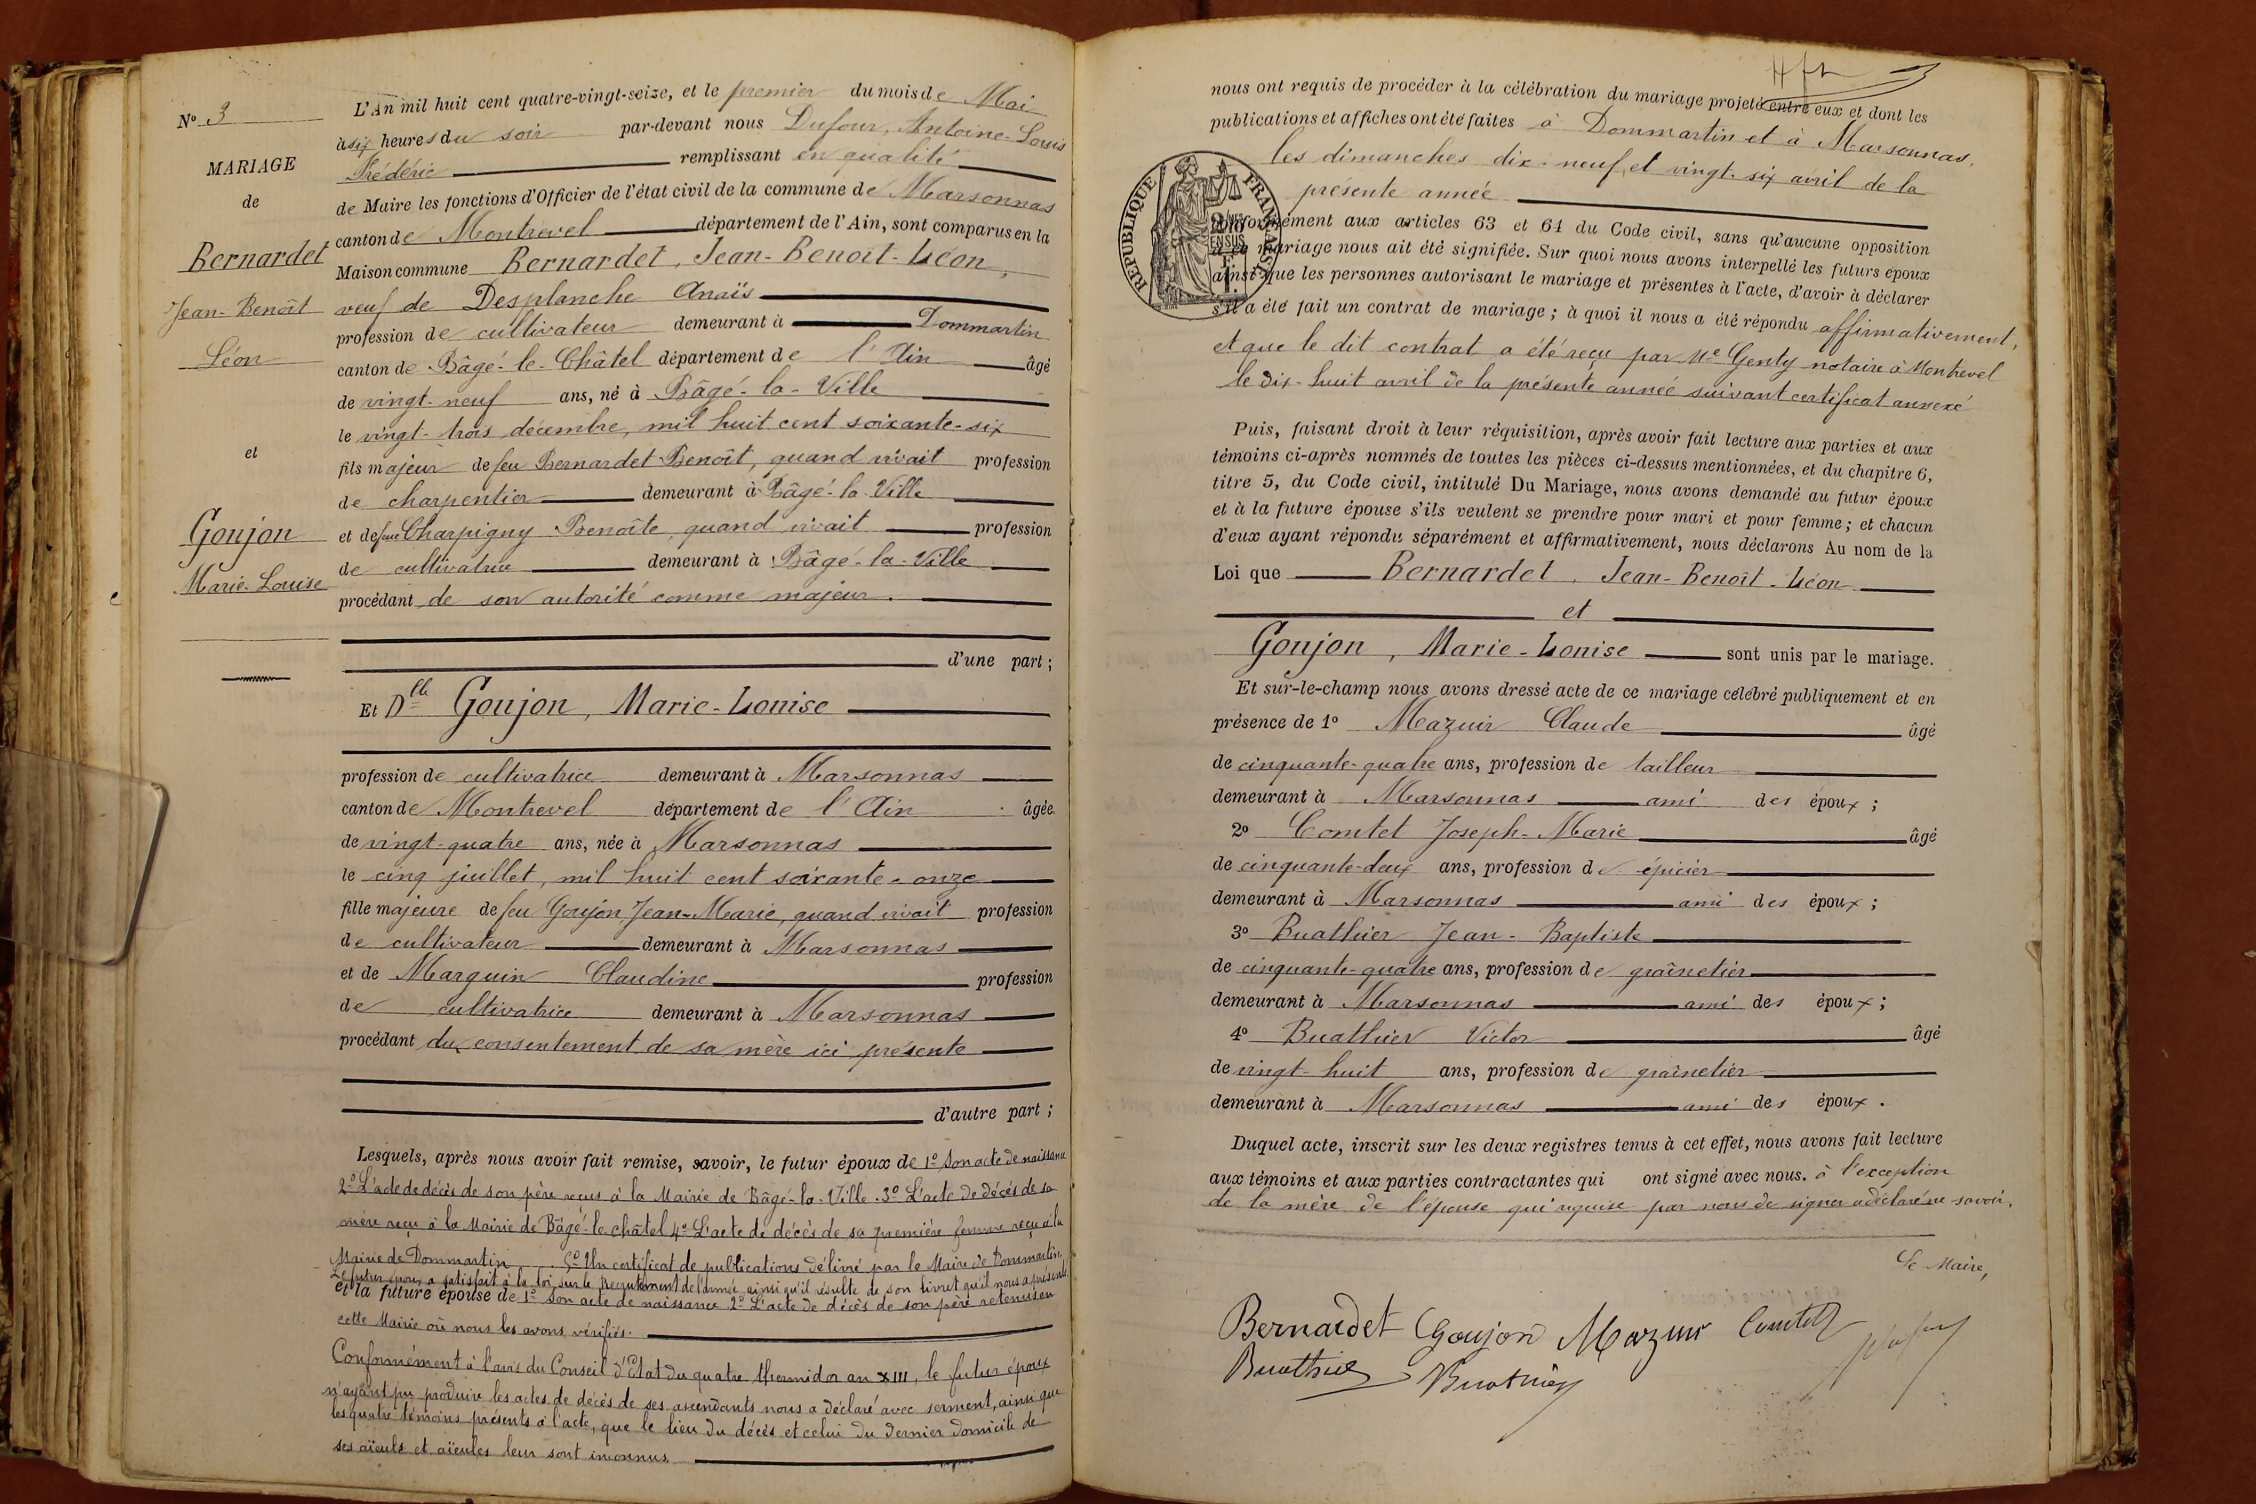 Nº 3
MARIAGE
de
Bernardet
Jean-Benoît
Léon
et
Goujon
Marie-Louise
L'An mil huit cent quatre-vingt-seize, et le premier du mois de Mai
à six heures du soir par-devant nous Dufour, Antoine-Louis
Frédéric remplissant en qualité
de Maire les fonctions d'Officier de l'état civil de la commune de Marsonnas
canton de Montrevel département de l'Ain, sont comparus en la
Maison commune Bernardet, Jean-Benoît-Léon,
veuf de Desplanche Anaïs
profession de cultivateur demeurant à Dommartin
canton de Bâgé-le-Châtel département de l'Ain âgé
de vingt-neuf ans, né à Bâgé-la-Ville
le vingt-trois décembre, mil huit cent soixante-six
fils majeur de feu Bernardet Benoît, quand vivait profession
de charpentier demeurant à Bâgé-la-Ville
et de feue Charpigny Benoîte, quand vivait profession
de cultivatrice demeurant à Bâgé-la-Ville
procédant de son autorité comme majeur.
d'une part ;
Et Dlle Goujon, Marie-Louise
profession de cultivatrice demeurant à Marsonnas
canton de Montrevel département de l'Ain âgée
de vingt-quatre ans, née à Marsonnas
le cinq juillet, mil huit cent soixante-onze
fille majeure de feu Goujon Jean-Marie, quand vivait profession
de cultivateur demeurant à Marsonnas
et de Marguin Claudine profession
de cultivatrice demeurant à Marsonnas
procédant du consentement de sa mère ici présente
d'autre part ;
Lesquels, après nous avoir fait remise, savoir, le futur époux de 1º Son acte de naissance
2º L'acte de décès de son père reçus à la Mairie de Bâgé-la-Ville. 3º L'acte de décès de sa
mère reçu à la Mairie de Bâgé-le-châtel 4º L'acte de décès de sa première femme reçu à la
Mairie de Dommartin 5º Un certificat de publications délivré par le Maire de Dommartin.
Le futur époux a satisfait à la loi sur le recrutement de l'armée ainsi qu'il résulte de son livret qu'il nous a présenté
et la future épouse de 1º Son acte de naissance 2º L'acte de décès de son père retenus en
cette Mairie où nous les avons vérifiés.
Conformément à l'avis du Conseil d'Etat du quatre thermidor an XIII, le futur époux
n'ayant pu produire les actes de décès de ses ascendants nous a déclaré avec serment, ainsi que
les quatre témoins présents à l'acte, que le lieu du décès et celui du dernier domicile de
ses aïeuls et aïeules leur sont inconnus.
nous ont requis de procéder à la célébration du mariage projeté entre eux et dont les
publications et affiches ont été faites à Dommartin et à Marsonnas,
les dimanches dix-neuf et vingt-six avril de la
présente année
RÉPUBLIQUE FRANÇAISE
conformément aux articles 63 et 64 du Code civil, sans qu'aucune opposition
à ce mariage nous ait été signifiée. Sur quoi nous avons interpellé les futurs époux
ainsi que les personnes autorisant le mariage et présentes à l'acte, d'avoir à déclarer
s'il a été fait un contrat de mariage ; à quoi il nous a été répondu affirmativement,
et que le dit contrat a été reçu par Me Genty notaire à Montrevel
le dix-huit avril de la présente année suivant certificat annexé
Puis, faisant droit à leur réquisition, après avoir fait lecture aux parties et aux
témoins ci-après nommés de toutes les pièces ci-dessus mentionnées, et du chapitre 6,
titre 5, du Code civil, intitulé Du Mariage, nous avons demandé au futur époux
et à la future épouse s'ils veulent se prendre pour mari et pour femme ; et chacun
d'eux ayant répondu séparément et affirmativement, nous déclarons Au nom de la
Loi que Bernardet, Jean-Benoît-Léon
et
Goujon, Marie-Louise sont unis par le mariage.
Et sur-le-champ nous avons dressé acte de ce mariage célébré publiquement et en
présence de 1º Mazuir Claude âgé
de cinquante-quatre ans, profession de tailleur
demeurant à Marsonnas ami des époux ;
2º Comtet Joseph-Marie âgé
de cinquante-deux ans, profession de épicier
demeurant à Marsonnas ami des époux ;
3º Buathier Jean-Baptiste
de cinquante-quatre ans, profession de graînetier
demeurant à Marsonnas ami des époux ;
4º Buathier Victor âgé
de vingt-huit ans, profession de graînetier
demeurant à Marsonnas ami des époux.
Duquel acte, inscrit sur les deux registres tenus à cet effet, nous avons fait lecture
aux témoins et aux parties contractantes qui ont signé avec nous. à l'exception
de la mère de l'épouse qui requise par nous de signer a déclaré ne savoir.
Le Maire,
Bernardet Goujon Mazuir Comtet
Buathier Buathier